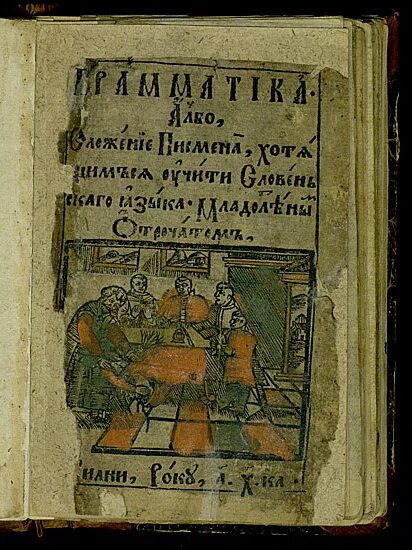 ГРАММАТІКА·
А҆́лбо,
Сложе́нїе Писмена̀, хотѧ́
щимъсѧ ѹ҆чи́ти Слове́нь
скаго ꙗ҆зы́ка· Младолѣ́ным
Ѻ҆троча́томъ,
илни, Ро́кꙋ, ҂а҃.х҃.ка҃·